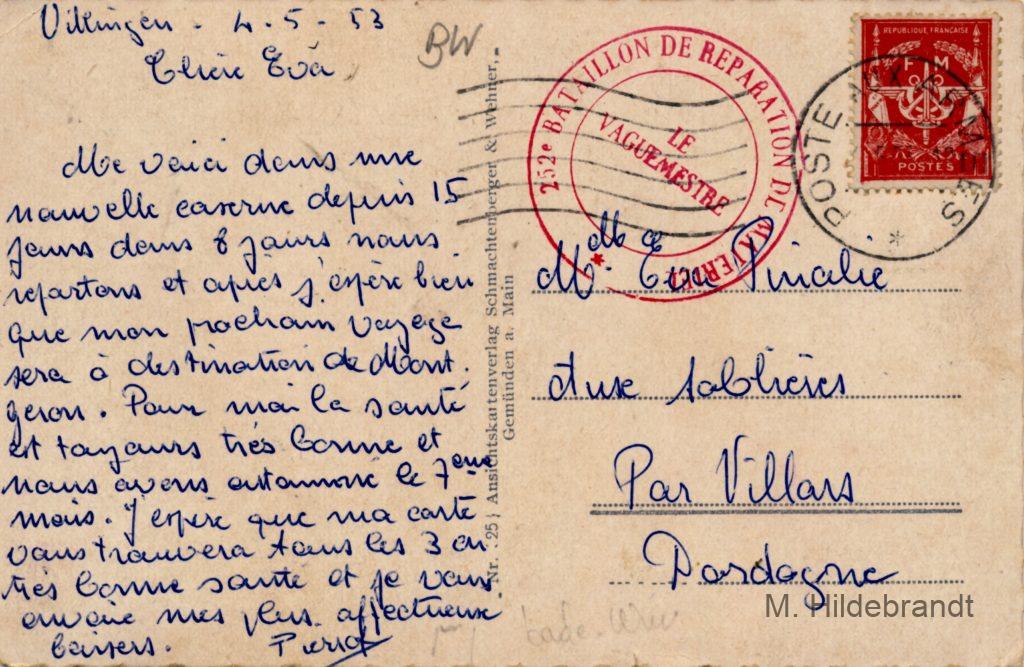 4-5-53
Chère Eva
Me voici dans une
nouvelle caserne depuis 15
jours dans 8 jours nous
repartons et après j'espère bien
que mon prochain voyage
sera à destination de Mont.
geron. Pour moi la santé
est toujours très bonne et
nous avons entammé le 7eme
mois. J'espère que ma carte
vous trouvera tous les 3 en
très bonne santé et je vous
envoie mes plus affectueux
baisers.
BW
Nr. 25 Ansichtskartenverlag Schmachtenberger & Wehner,
Gemünden a. Main
252e BATAILLON DE REPARATION DE
LE
VAGUEMESTRE
REPUBLIQUE FRANÇAISE
F M
POSTES
POSTE AUX ARMEES
*
Mr Me
Aux Sablières
Par Villars
Dordogne
M. Hildebrandt